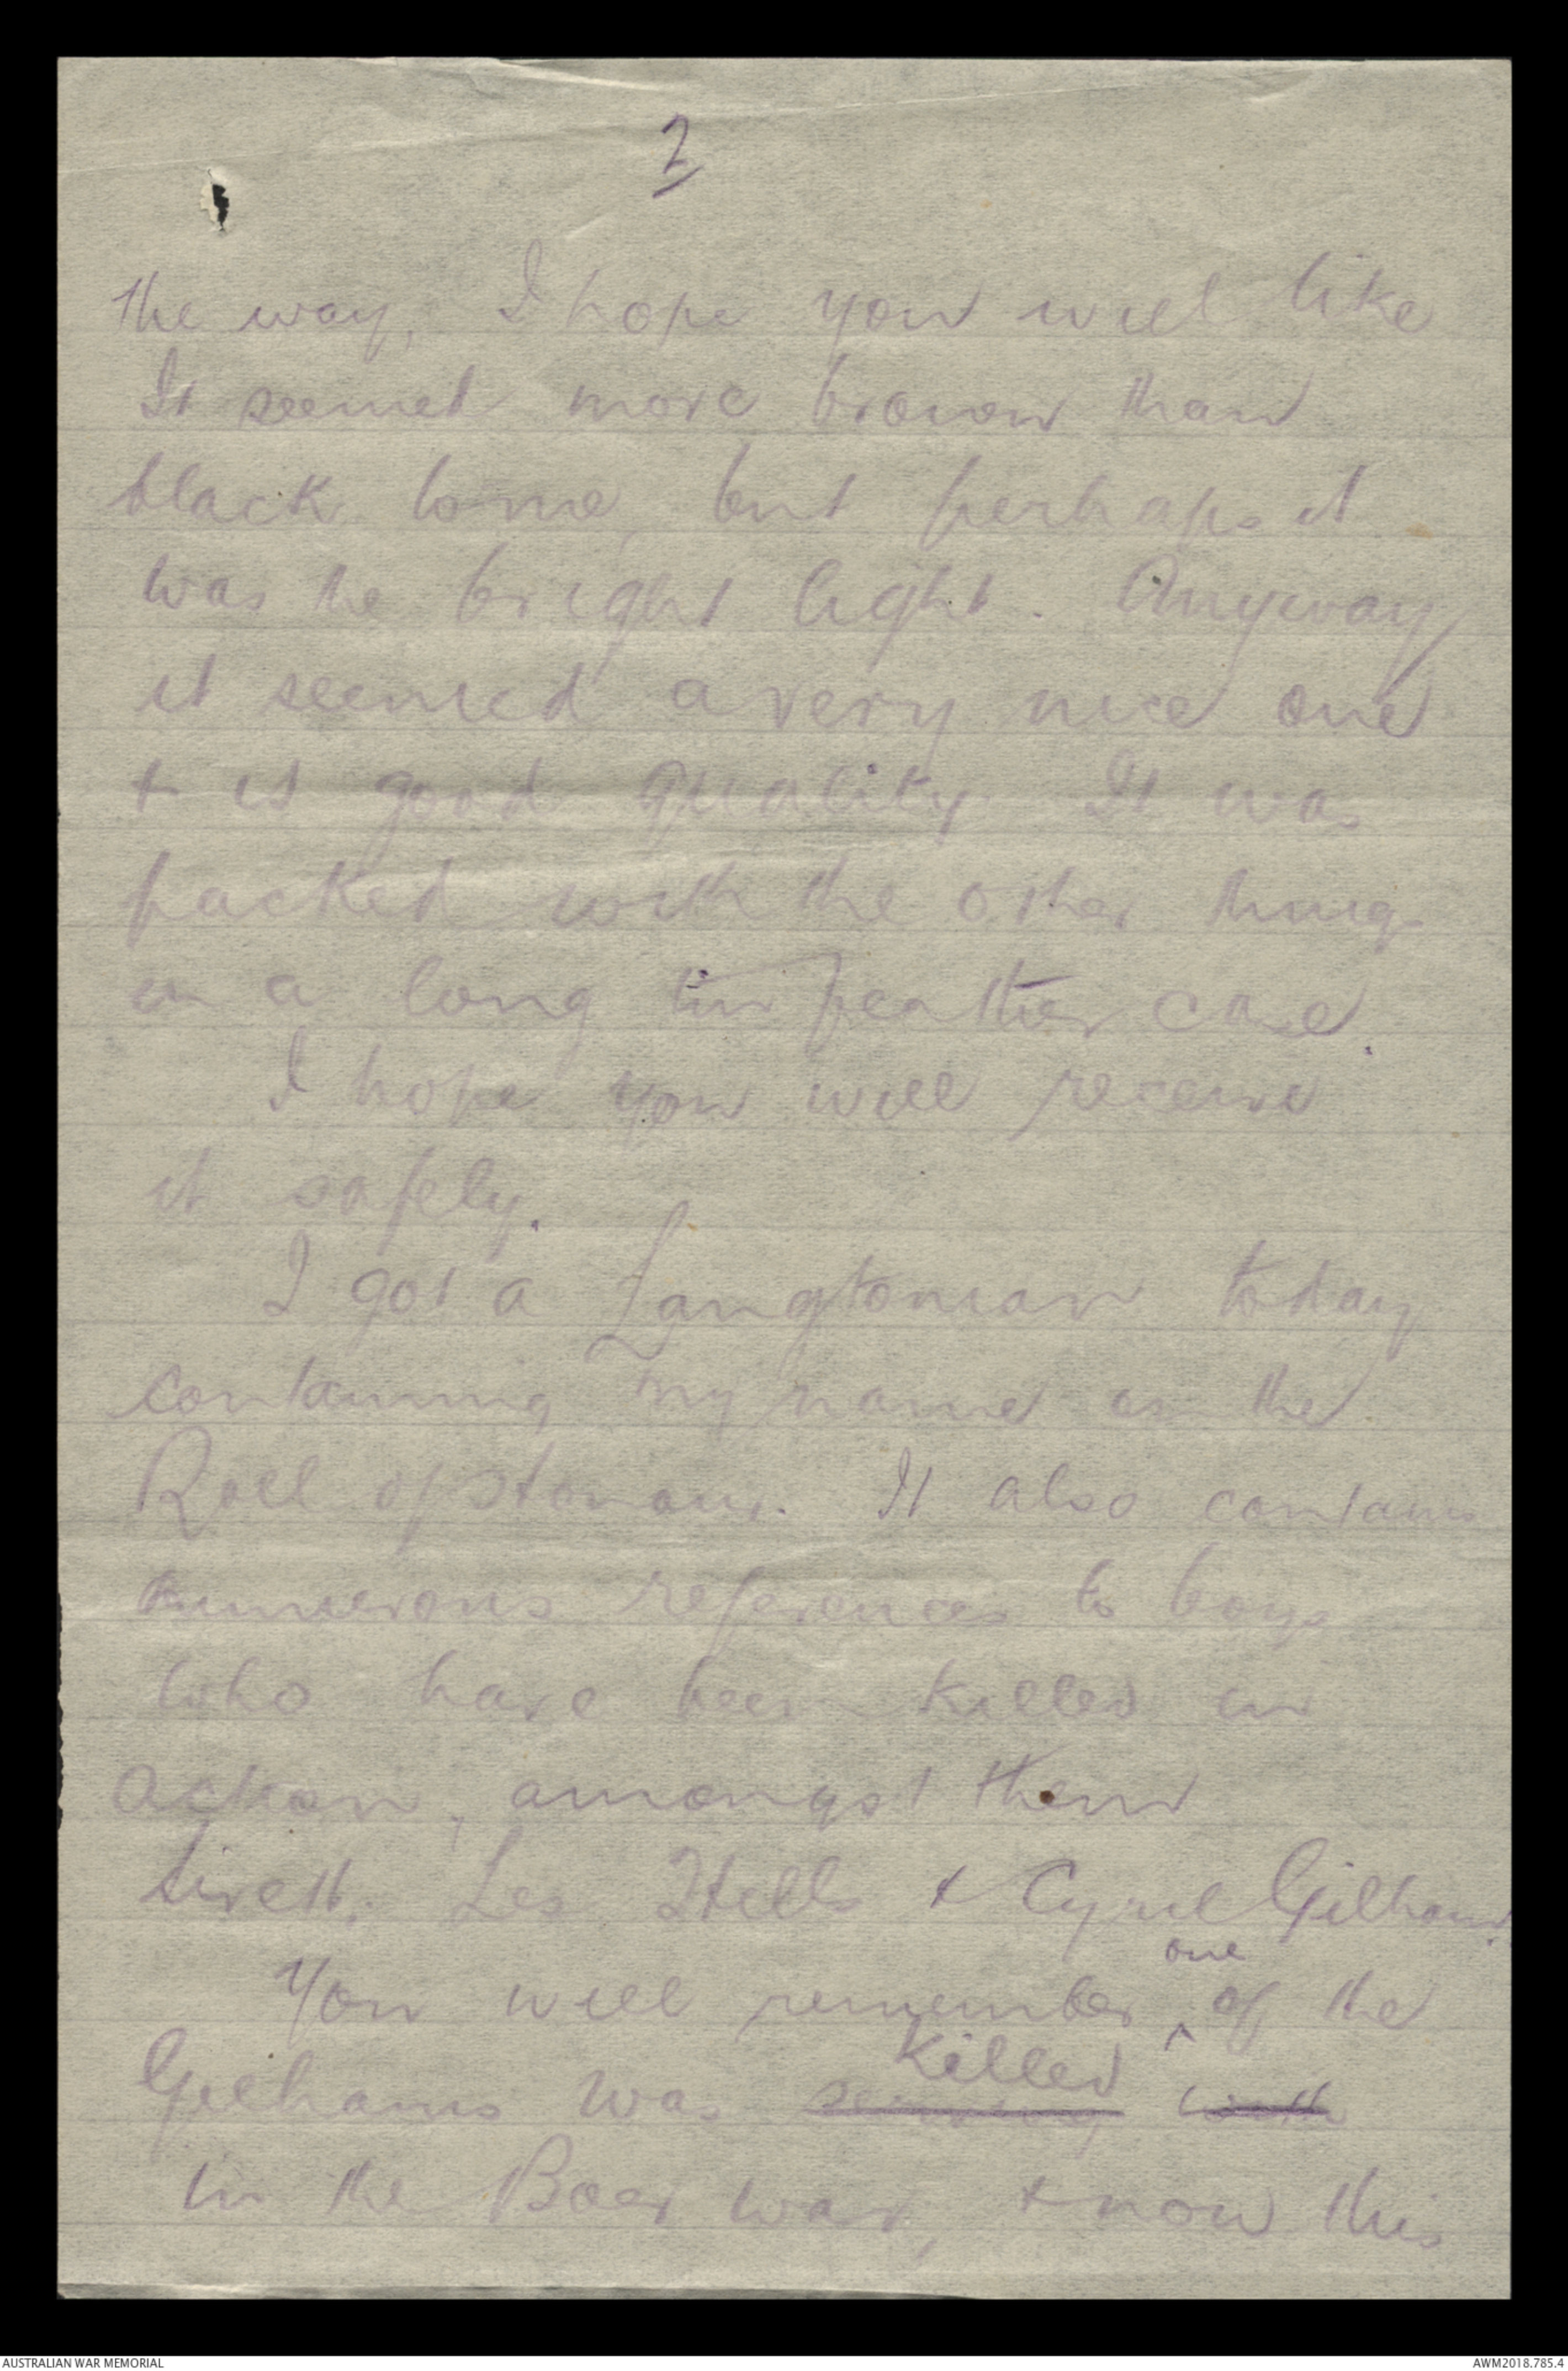 2
the way, I hope you will like
It seemed more brown than
black to me, but perhaps it
was the bright light. Anyway
it seemed a very nice one
& is good quality. It was
packed with the other things
in a long tin feather case.
I hope you will receive
it safely.
I got a Langtonian today
containing my name on the
Roll of Honour. It also contains
numerous references to boys
who have been killed in
action, amongst them
Les Hells & Cyril Gilham.
You will remember one of the
Gilhams was killed
in the Boer war, & now this
AUSTRALIAN WAR MEMORIAL
AWM2018.785.4